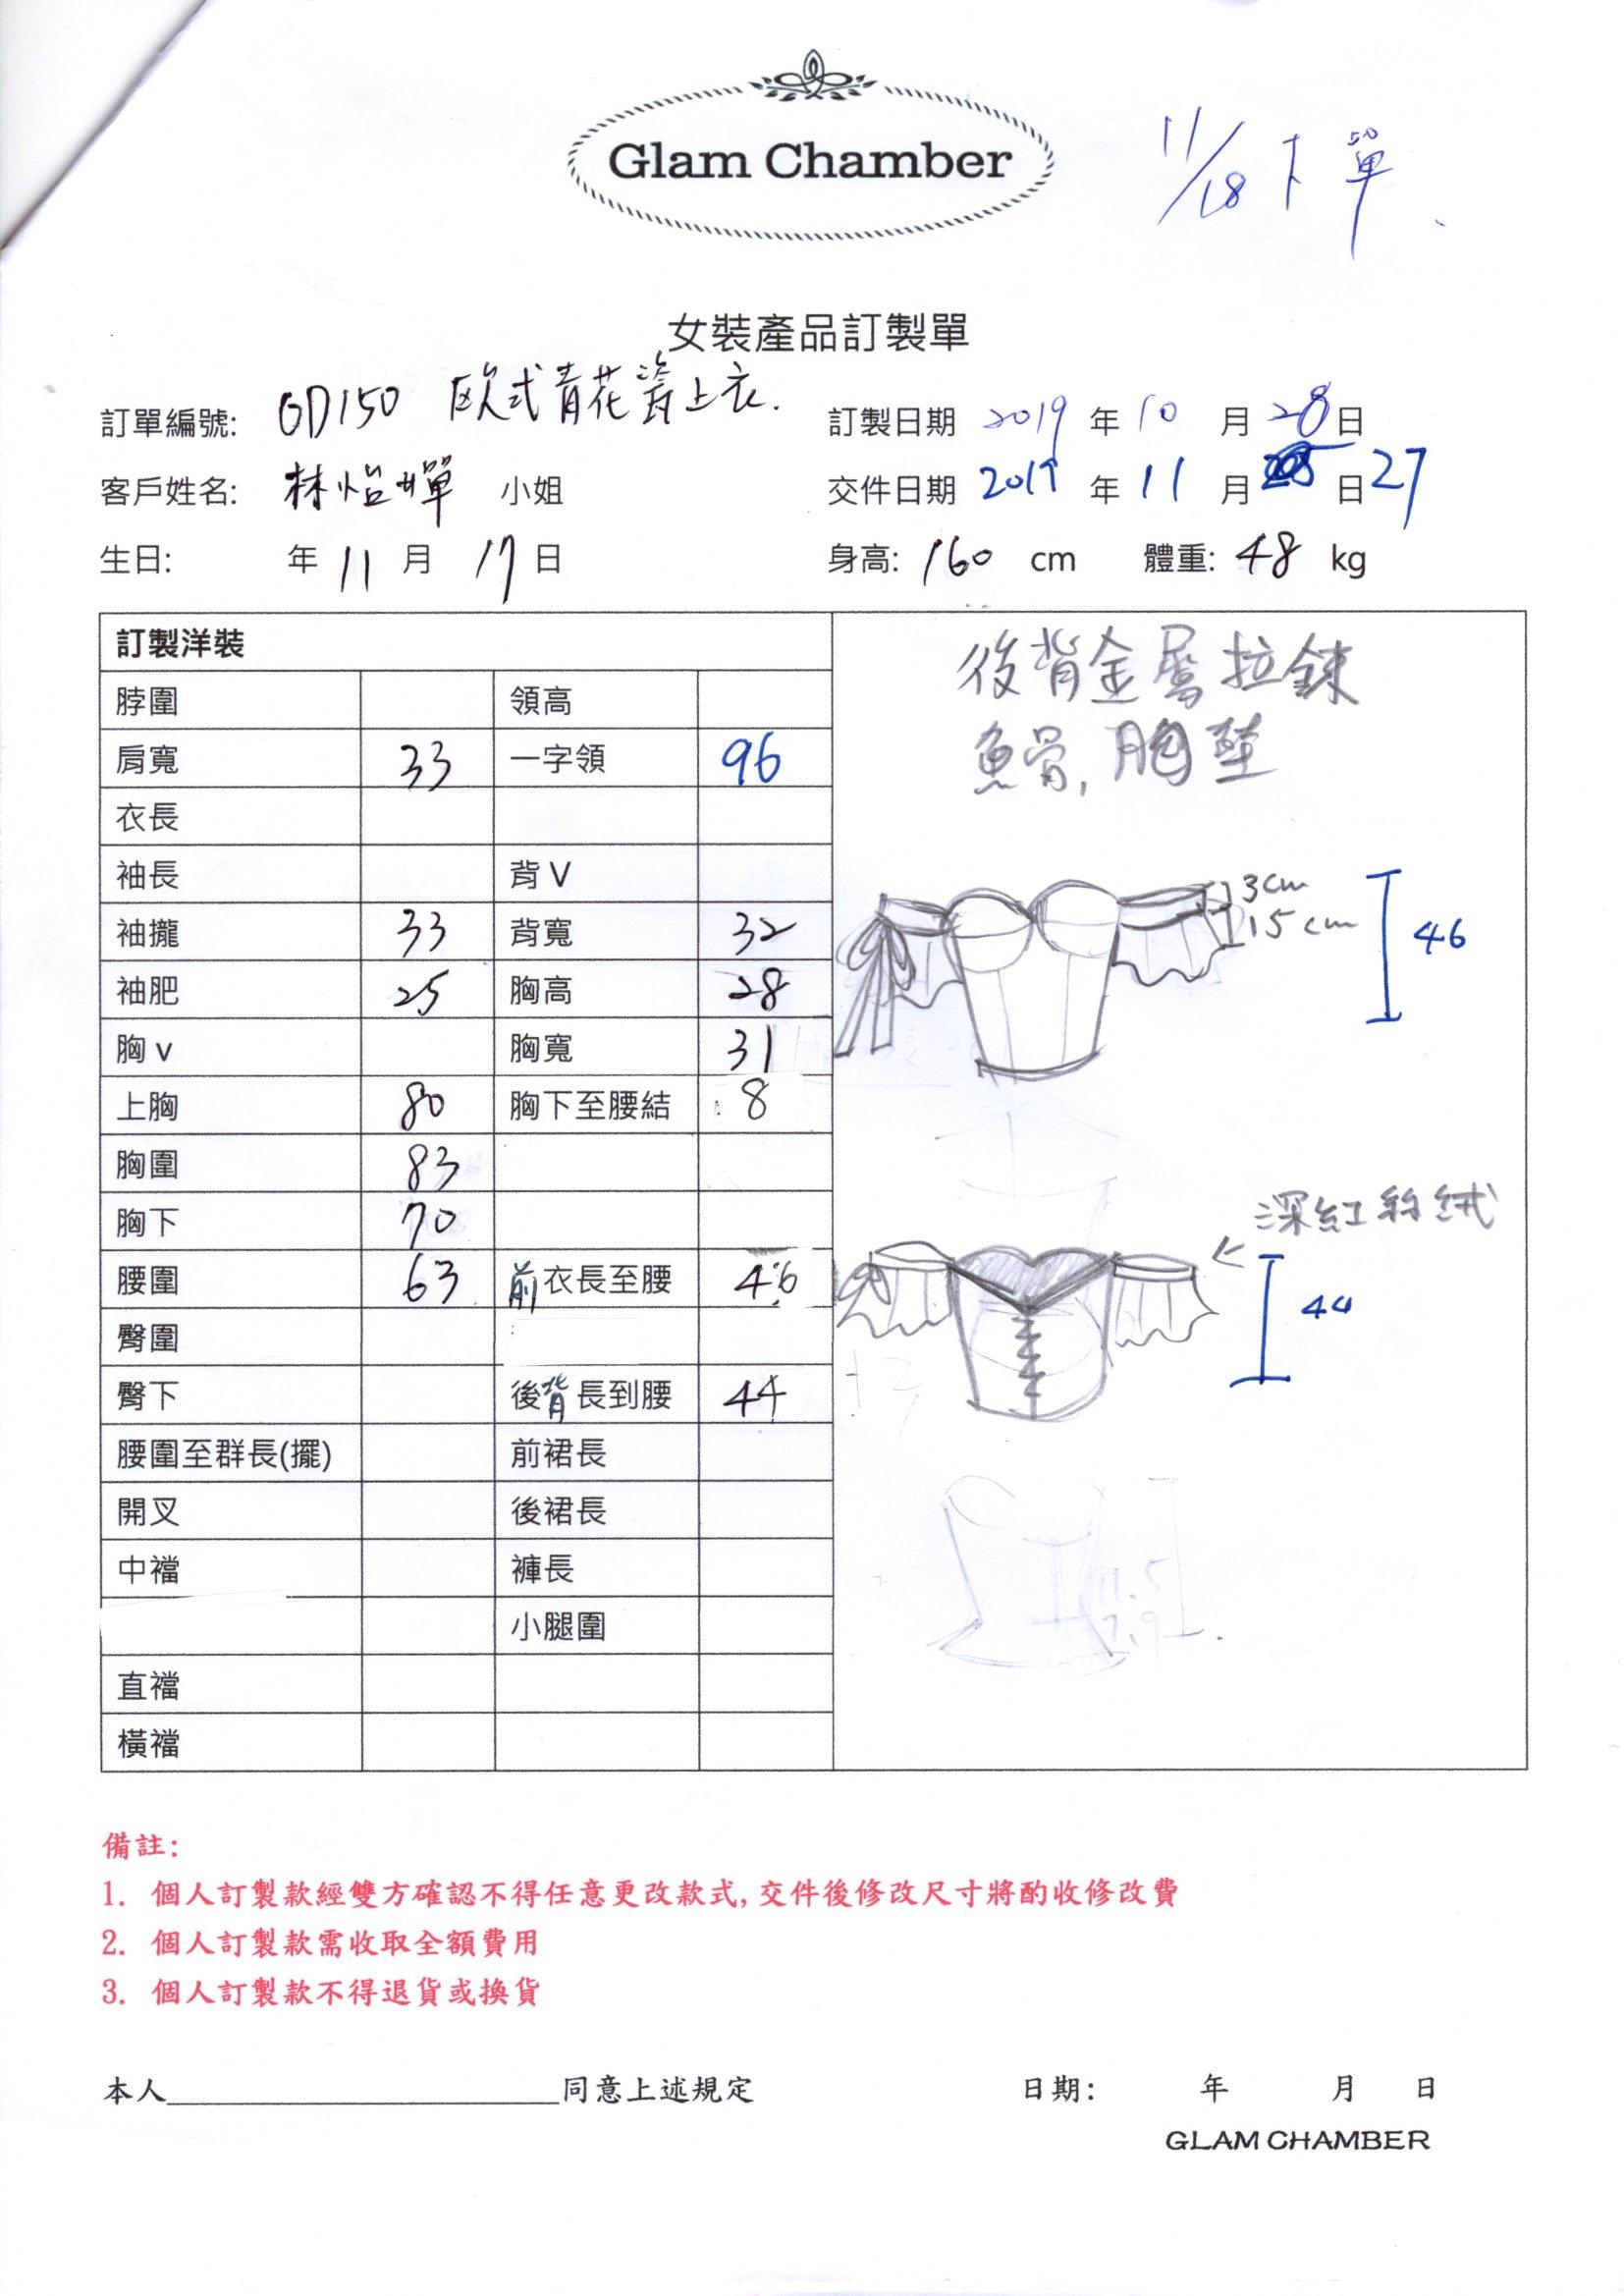 Glam Chamber
11/18 下單
女裝產品訂製單
訂單編號: GD150 歐式青花瓷上衣.
訂製日期 2019 年 10 月 28 日
客戶姓名: 林怡嬋 小姐
交件日期 2019 年 11 月 日 27
生日: 年 11 月 17 日
身高: 160 cm 體重: 48 kg
訂製洋裝
脖圍 領高
肩寬 33 一字領 96
衣長
袖長 背 V
袖攏 33 背寬 32
袖肥 25 胸高 28
胸 v 胸寬 31
上胸 80 胸下至腰結 8
胸圍 83
胸下 70
腰圍 63 前衣長至腰 46
臀圍
臀下 後背長到腰 44
腰圍至群長(擺) 前裙長
開叉 後裙長
中襠 褲長
小腿圍
直襠
橫襠
後背金屬拉鍊
魚骨, 胸墊
3cm
15cm
46
深紅絲絨
44
備註:
1. 個人訂製款經雙方確認不得任意更改款式, 交件後修改尺寸將酌收修改費
2. 個人訂製款需收取全額費用
3. 個人訂製款不得退貨或換貨
本人 同意上述規定
日期: 年 月 日
GLAM CHAMBER